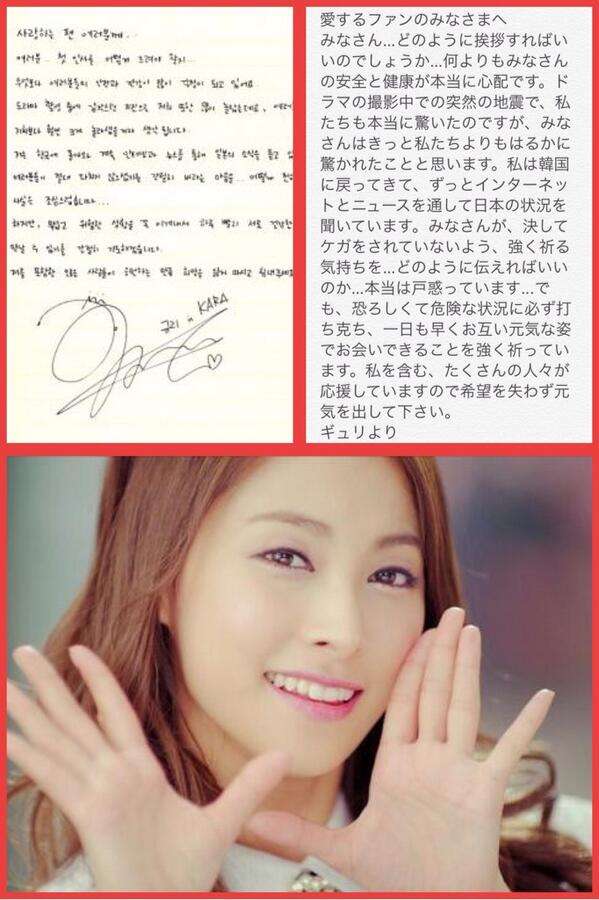 사랑하는 팬 여러분께...
여러분... 첫 인사를 어떻게 드려야 할지...
무엇보다 여러분들의 안전과 건강이 많이 걱정이 되고 있어요...
드라마 촬영 중에 갑작스런 지진으로 저희 또한 많이 놀랐는데요,
저희보다 훨씬 크게 놀라셨을거라 생각 됩니다.
저는 한국에 돌아와 계속 인터넷과 뉴스를 통해 일본의 소식을 듣고
여러분들이 절대 다치지 않으셨기를 간절히 바라는 마음을... 어떻게
사실은 조심스럽습니다...
하지만, 무섭고 위험한 상황을 꼭 이겨내서 하루 빨리 서로 건강한
만날 수 있기를 간절히 기도하겠습니다.
저를 포함한 많은 사람들이 응원하는 만큼 희망을 잃지 마시고 힘내주세요
규리 in KARA
愛するファンのみなさまへ
みなさん...どのように挨拶すればい
いのでしょうか...何よりもみなさん
の安全と健康が本当に心配です。ド
ラマの撮影中での突然の地震で、私
たちも本当に驚いたのですが、みな
さんはきっと私たちよりもはるかに
驚かれたことと思います。私は韓国
に戻ってきて、ずっとインターネッ
トとニュースを通して日本の状況を
聞いています。みなさんが、決して
ケガをされていないよう、強く祈る
気持ちを...どのように伝えればいい
のか...本当は戸惑っています...で
も、恐ろしくて危険な状況に必ず打
ち克ち、一日も早くお互い元気な姿
でお会いできることを強く祈ってい
ます。私を含む、たくさんの人々が
応援していますので希望を失わず元
気を出して下さい。
ギュリより